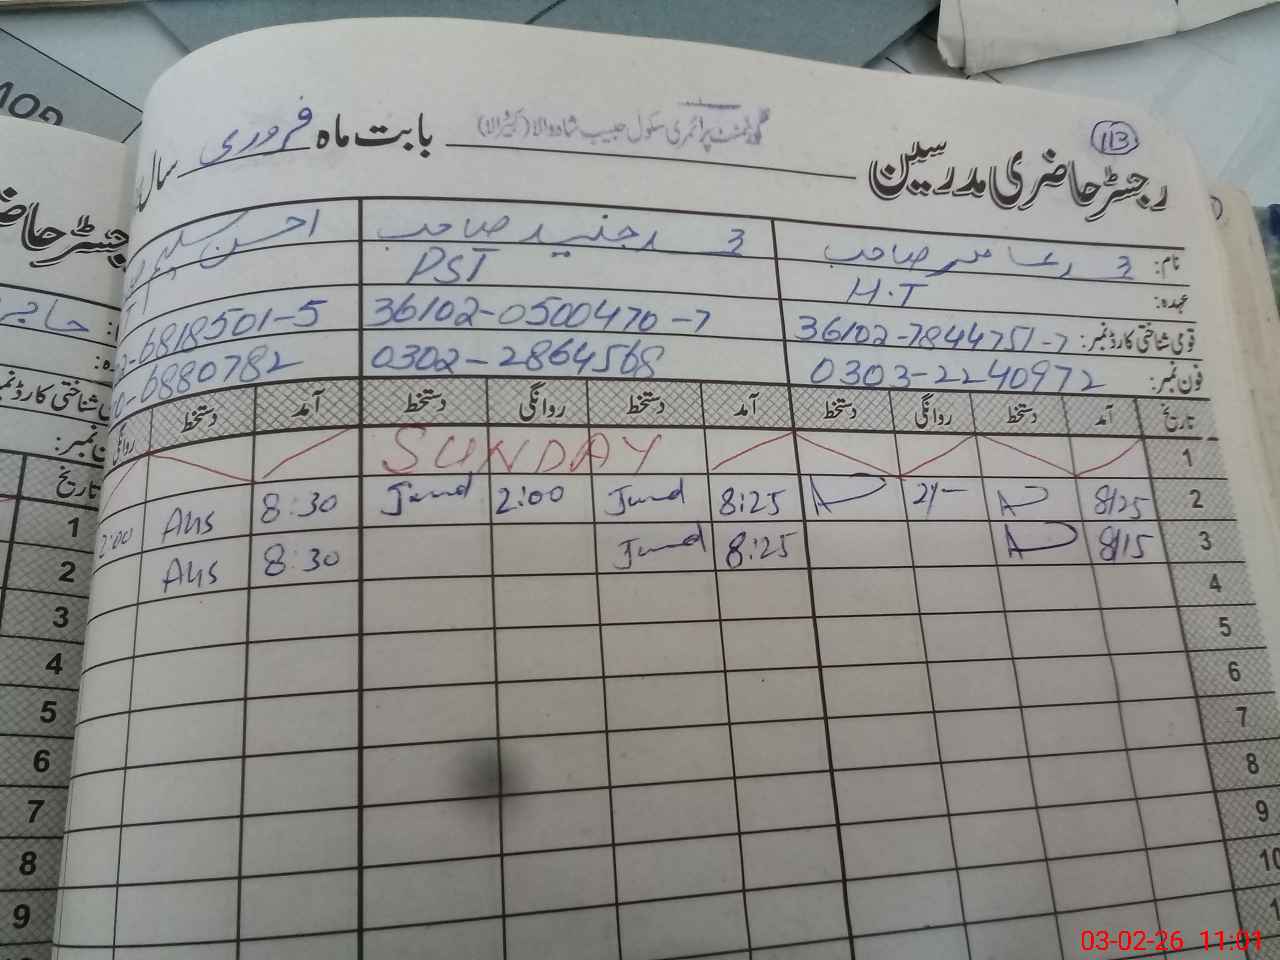 113
رجسٹر حاضری مدرسین گورنمنٹ پرائمری سکول حبیب شاہ والا بابت ماہ فروری سال
نام: صاحب جنید صاحب احسن سلیم
عہدہ: H.T PST
قومی شناختی کارڈ نمبر: 36102-7844751-7 36102-0500470-7 6818501-5
فون نمبر: 0303-2240972 0302-2864568 6880782
تاریخ آمد دستخط روانگی دستخط آمد دستخط روانگی دستخط آمد دستخط روانگی
1 SUNDAY
2 8/25 2/- 8:25 Jund 2:00 Jund 8:30 Ahs 2:00
3 8/15 8:25 Jund 8:30 Ahs
4
5
6
7
8
9
10
رجسٹر
تاریخ
1
2
3
4
5
6
7
8
9
03-02-26 11:01